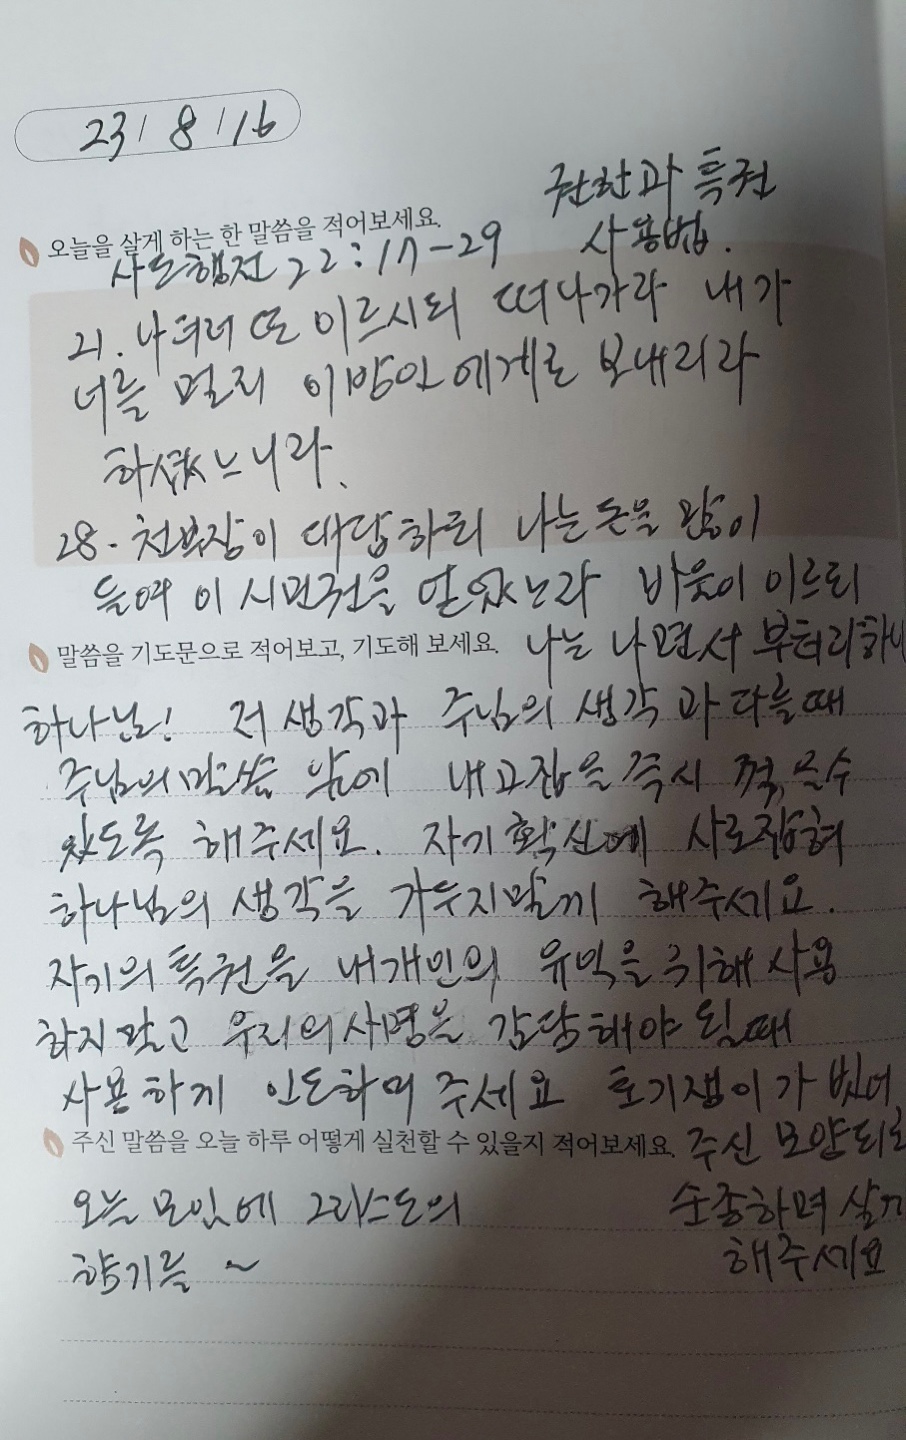 23 / 8 / 16
권한과 특권
사용법.
오늘을 살게 하는 한 말씀을 적어보세요.
사도행전 22:17-29
21. 나더러 또 이르시되 떠나가라 내가
너를 멀리 이방인에게로 보내리라
하셨느니라.
28. 천부장이 대답하되 나는 돈을 많이
들여 이 시민권을 얻었노라 바울이 이르되
나는 나면서 부터라 하니
말씀을 기도문으로 적어보고, 기도해 보세요.
하나님! 저 생각과 주님의 생각과 다를때
주님의 말씀 앞에 내고집을 즉시 꺽을수
있도록 해주세요. 자기 확신에 사로잡혀
하나님의 생각을 가두지말게 해주세요.
자기의 특권을 내개인의 유익을 위해 사용
하지 말고 우리의 사명을 감당해야 될때
사용하게 인도하여 주세요 토기쟁이가 빚어
주신 모양대로
순종하며 살게
해주세요
주신 말씀을 오늘 하루 어떻게 실천할 수 있을지 적어보세요.
오늘 모임에 그리스도의
향기를 ~